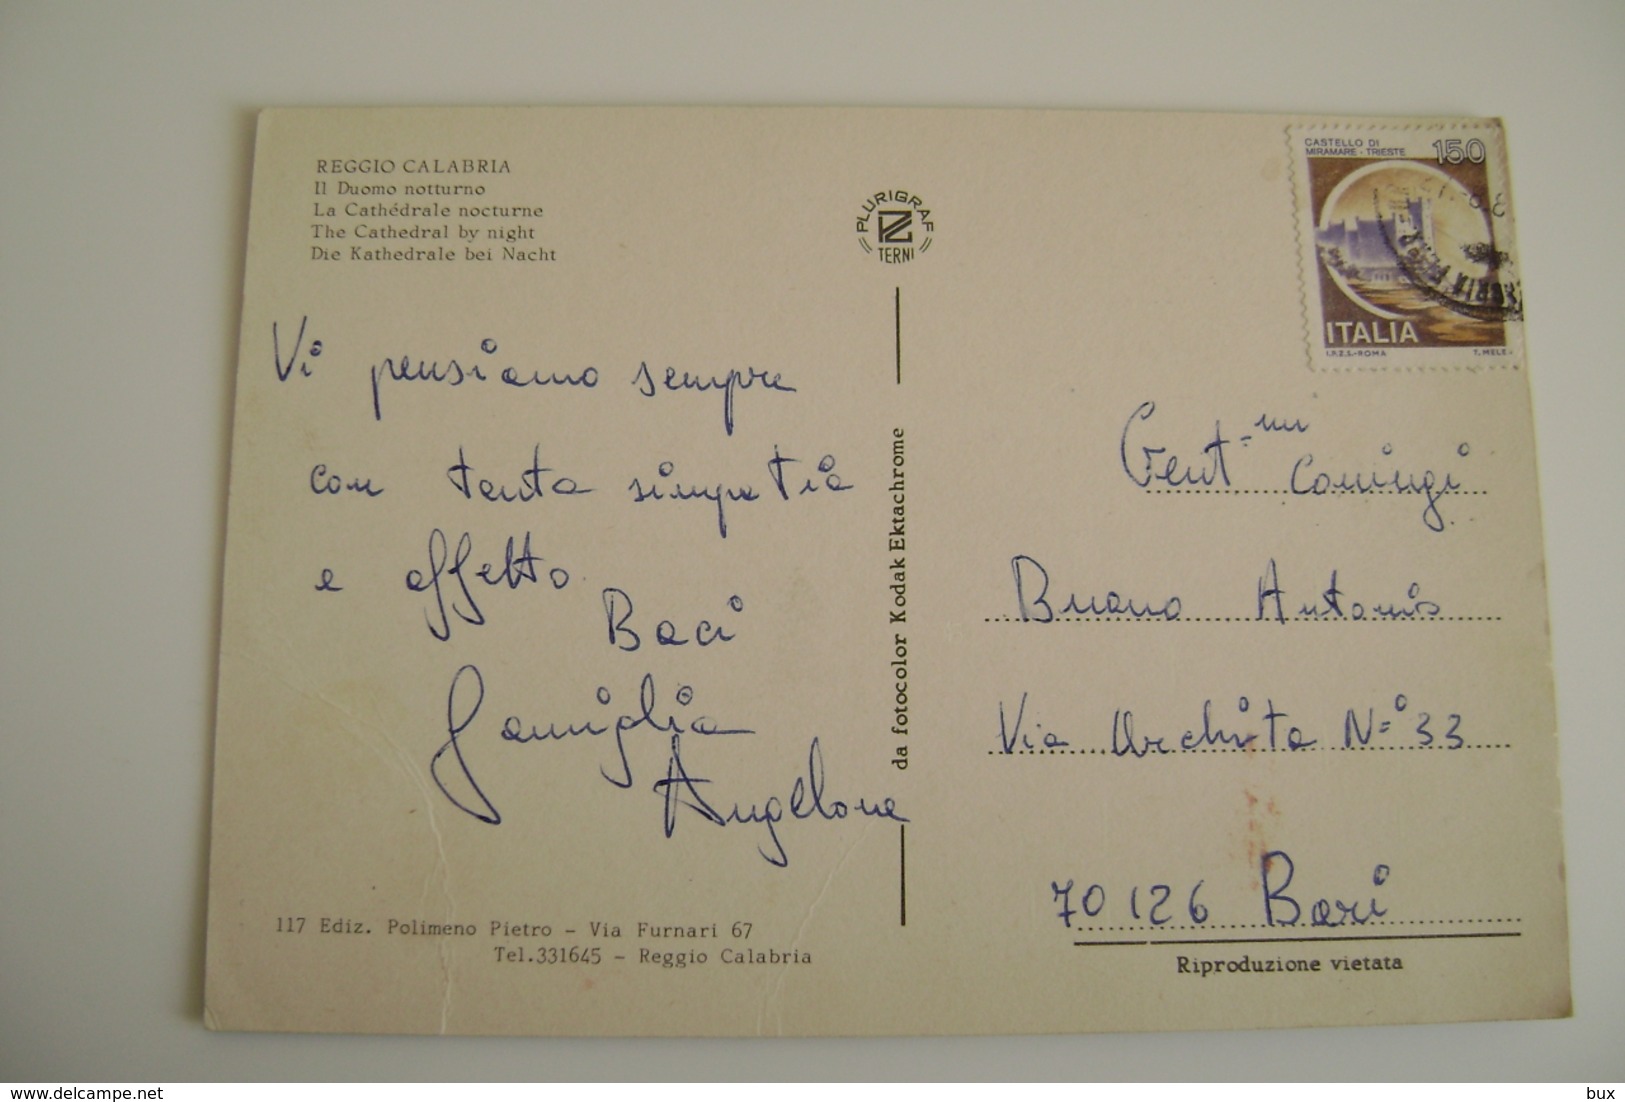 REGGIO CALABRIA
Il Duomo notturno
La Cathédrale nocturne
The Cathedral by night
Die Kathedrale bei Nacht
PLURIGRAF
TERNI
CASTELLO DI
MIRAMARE - TRIESTE
150
ITALIA
I.P.Z.S.-ROMA
Vi pensiamo sempre
con tanta simpatia
e affetto
Baci
Famiglia
Angelone
da fotocolor Kodak Ektachrome
Gent.mi Coniugi
Buono Antonio
Via Archita N° 33
70126 Bari
Riproduzione vietata
117 Ediz. Polimeno Pietro - Via Furnari 67
Tel.331645 - Reggio Calabria
delcampe.net
bux